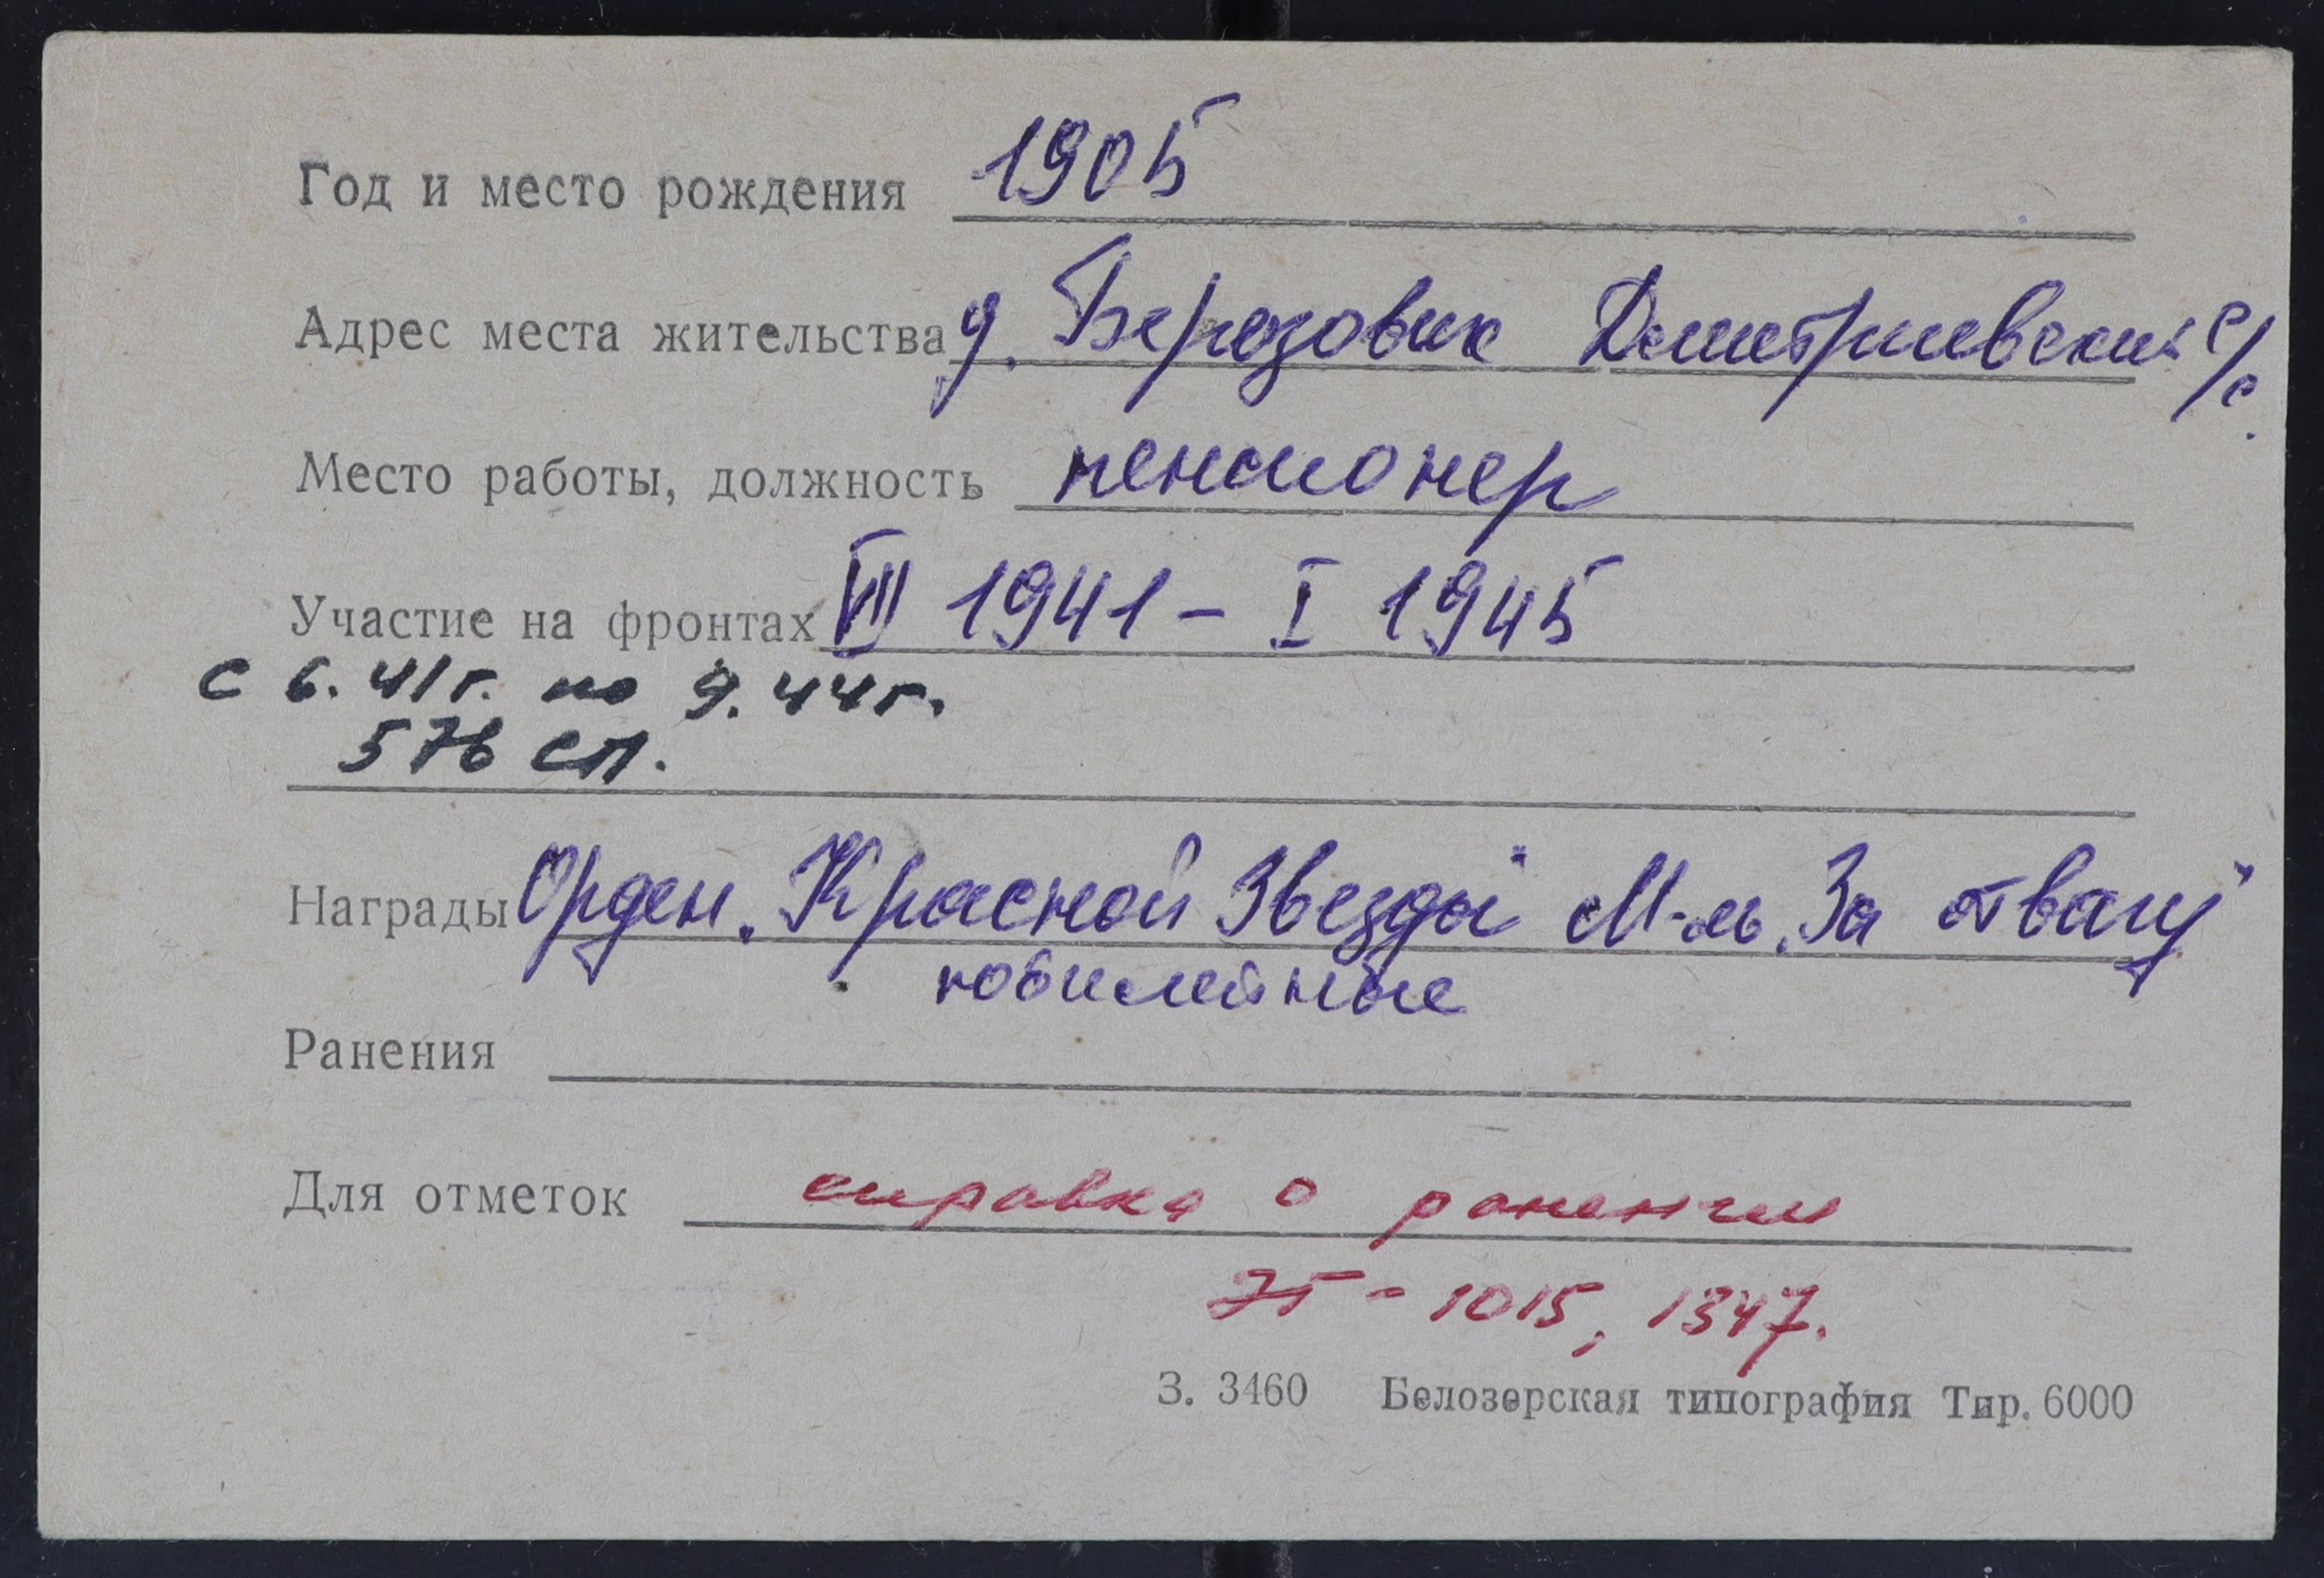 Год и место рождения 1905
Адрес места жительства д. Березовик Дмитриевский с/с.
Место работы, должность пенсионер
Участие на фронтах VII 1941 – I 1945
с 6.41г. по 9.44г.
576 сп.
Награды Орден „Красной Звезды" М-ль „За отвагу"
юбилейные
Ранения
Для отметок справка о ранении
75 - 1015, 1347.
З. 3460 Белозерская типография Тир. 6000